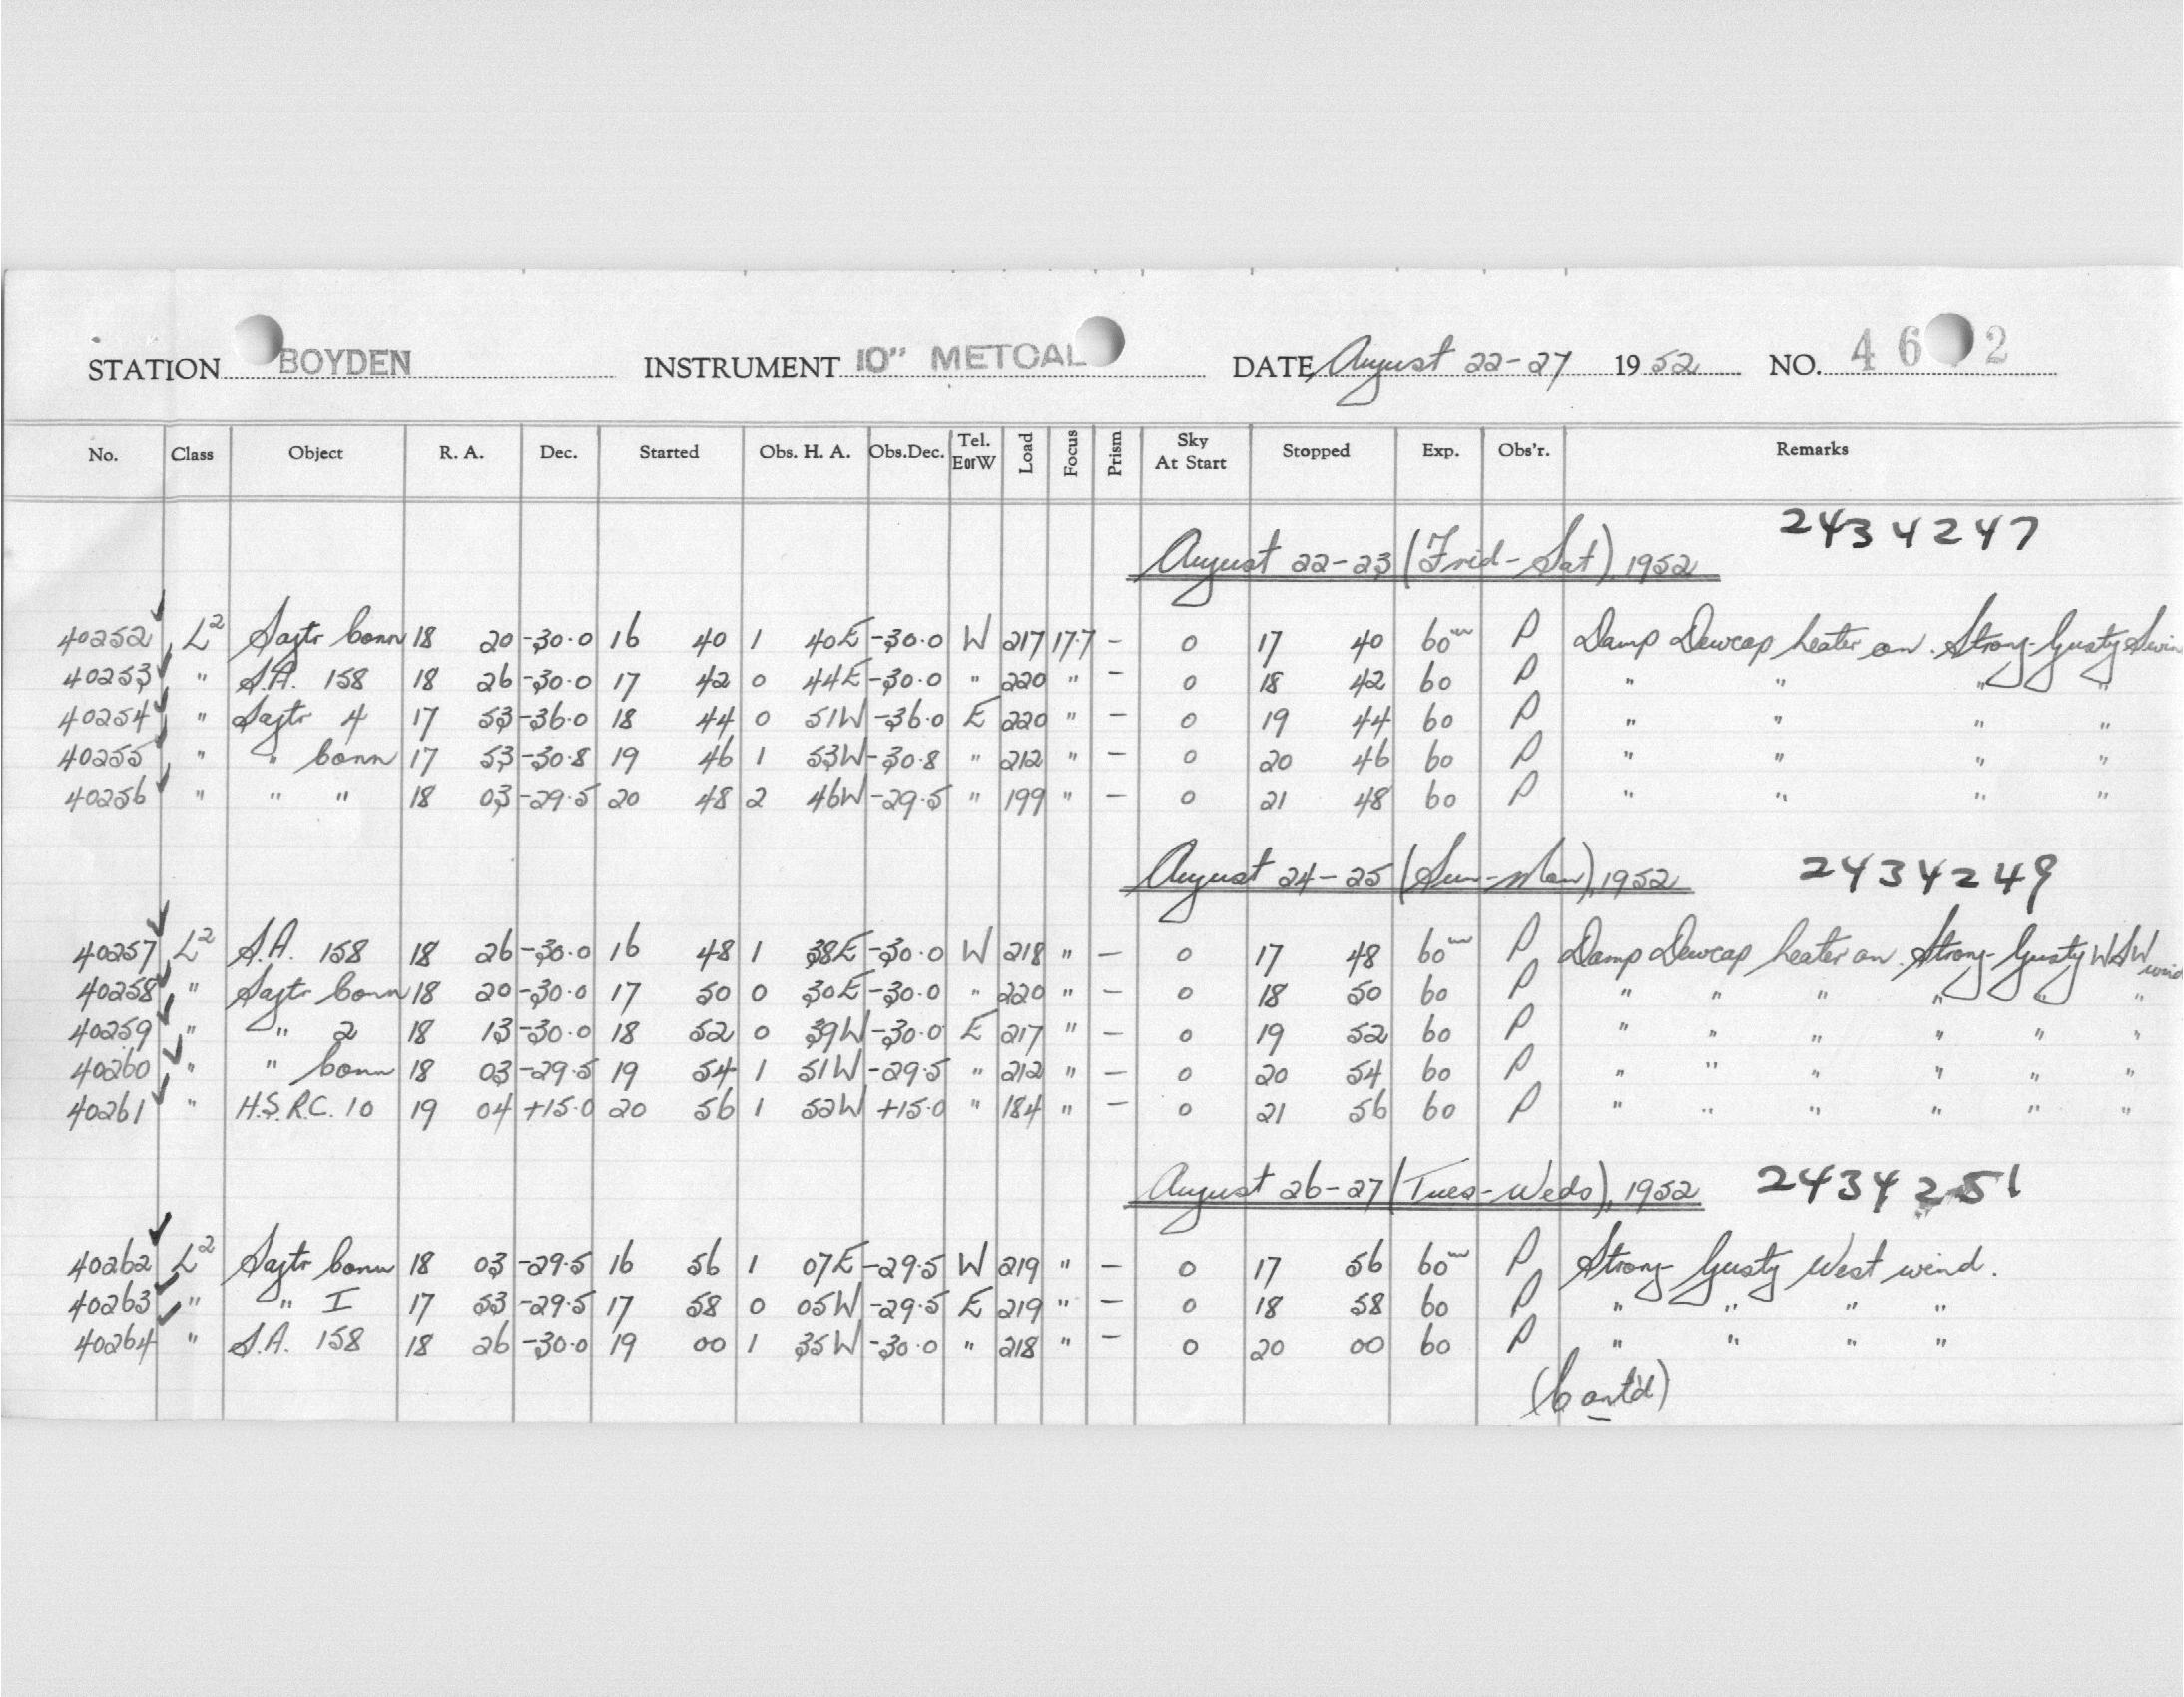 STATION BOYDEN INSTRUMENT 10" METCAL DATE August 22-27 1952 NO. 46 2
No. Class Object R. A. Dec. Started Obs. H. A. Obs.Dec. Tel. EorW Load Focus Prism Sky At Start Stopped Exp. Obs'r. Remarks
2434247
August 22-23 (Frid-Sat), 1952
40252 L² Sagtr Conn 18 20 -30.0 16 40 1 40E -30.0 W 217 17.7 - 0 17 40 60m P Damp Dewcap heater on. Strong Gusty S win
40253 " S.A. 158 18 26 -30.0 17 42 0 44E -30.0 " 220 " - 0 18 42 60 P " " " "
40254 " Sagtr 4 17 53 -36.0 18 44 0 51W -36.0 E 220 " - 0 19 44 60 P " " " "
40255 " " Conn 17 53 -30.8 19 46 1 53W -30.8 " 212 " - 0 20 46 60 P " " " "
40256 " " " 18 03 -29.5 20 48 2 46W -29.5 " 199 " - 0 21 48 60 P " " " "
August 24-25 (Sun-Mon), 1952 2434249
40257 L² S.A. 158 18 26 -30.0 16 48 1 38E -30.0 W 218 " - 0 17 48 60m P Damp Dewcap heater on. Strong Gusty WSW wind
40258 " Sagtr Conn 18 20 -30.0 17 50 0 30E -30.0 " 220 " - 0 18 50 60 P " " " " " "
40259 " " 2 18 13 -30.0 18 52 0 39W -30.0 E 217 " - 0 19 52 60 P " " " " " "
40260 " " Conn 18 03 -29.5 19 54 1 51W -29.5 " 212 " - 0 20 54 60 P " " " " " "
40261 " H.S.R.C. 10 19 04 +15.0 20 56 1 52W +15.0 " 184 " - 0 21 56 60 P " " " " " "
August 26-27 (Tues-Weds), 1952 2434251
40262 L² Sagtr Conn 18 03 -29.5 16 56 1 07E -29.5 W 219 " - 0 17 56 60m P Strong Gusty West wind.
40263 " " I 17 53 -29.5 17 58 0 05W -29.5 E 219 " - 0 18 58 60 P " " " "
40264 " S.A. 158 18 26 -30.0 19 00 1 35W -30.0 " 218 " - 0 20 00 60 P " " " "
(Cont'd)